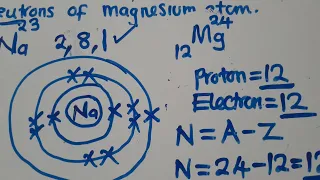 eutrons of magnesium atom.
23
Na 2,8,1 ✓
24
Mg
12
Na
Proton=12
Electron=12
N=A-Z
N=24-12=12